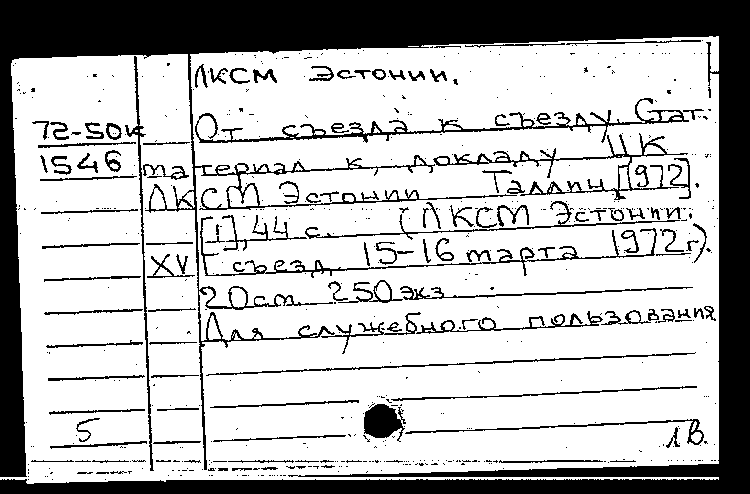 ЛКСМ Эстонии.
72-50к От съезда к съезду. Стат.
1546 материал к докладу ЦК
ЛКСМ Эстонии. Таллин, [1972].
[1], 44 с. (ЛКСМ Эстонии.
XVI съезд. 15-16 марта 1972 г).
20 см. 250 экз.
Для служебного пользования
5 ЛВ.